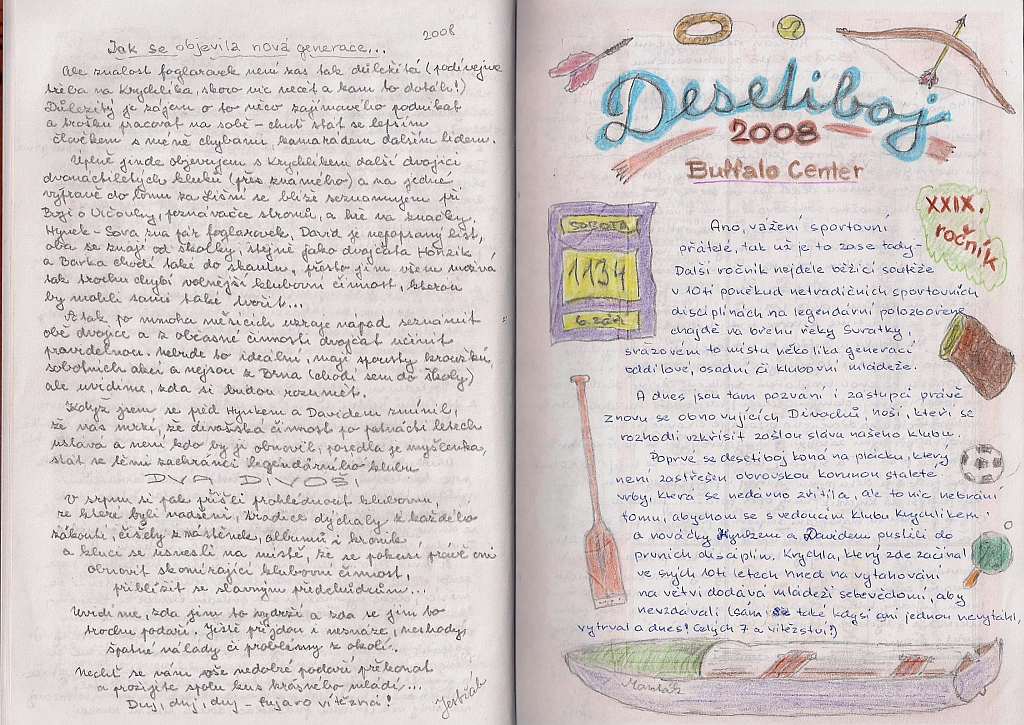 2008
Jak se objevila nová generace...
Ale znalost foglarovek není zas tak důležitá (podívejme
třeba na Krychlíka, skoro nic nečet a kam to dotáh!)
Důležitý je zájem o to něco zajímavého podnikat
a trošku pracovat na sobě - chuť stát se lepším
člověkem s méně chybami, kamarádem dalším lidem.
Úplně jinde objevujem s Krychlíkem další dvojici
dvanáctiletých kluků (přes známého) a na jedné
výpravě do lomu za Líšní se blíže seznamujem při
Boji o Vlčovky, poznávačce stromů, a hře na značky.
Hynek - Sova zná pár foglarovek, David je nepopsaný list,
oba se znají od školky, stejně jako dvojčata Honzík
a Barka chodí také do skautu, přesto jim všem možná
tak trochu chybí volnější klubovní činnost, kterou
by mohli sami také tvořit...
A tak po mnoha měsících uzraje nápad seznámit
obě dvojice a z občasné činnosti dvojčat učinit
pravidelnou. Nebude to ideální, mají spousty kroužků,
sobotních akcí a nejsou z Brna (chodí sem do školy)
ale uvidíme, zda si budou rozumět.
Když jsem se před Hynkem a Davidem zmínil,
že nás mrzí, že divošská činnost po patnácti letech
ustává a není kdo by ji obnovil, posedla je myšlenka,
stát se těmi zachránci legendárního klubu
DVA DIVOŠI
V srpnu si pak přišli prohlédnout klubovnu,
ze které byli nadšeni, tradice dýchaly z každého
zákoutí, čišely z nástěnek, albumů i kronik
a kluci se usnesli na místě, že se pokusí právě oni
obnovit skomírající klubovní činnost,
přiblížit se slavným předchůdcům...
Uvidíme, zda jim to vydrží a zda se jim to
trochu podaří. Jistě přijdou i nesnáze, neshody,
špatné nálady či problémy z okolí.
Nechť se vám vše nedobré podaří překonat
a prožijete spolu kus krásného mládí...
Duj, duj, duj - fujaro vítězná!
Jestřáb
Desetiboj
2008
Buffalo Center
XXIX.
ročník
SOBOTA
1134
6. září
Ano, vážení sportovní
přátelé, tak už je to zase tady -
Další ročník nejdéle běžící soutěže
v 10ti poněkud netradičních sportovních
disciplínách na legendární polozbořené
chajdě na břehu řeky Svratky,
srázovém to místu několika generací
oddílové, osadní či klubovní mládeže.
A dnes jsou tam pozváni i zástupci právě
znovu se obnovujících Divochů, hoši, kteří se
rozhodli vzkřísit zašlou slávu našeho klubu.
Poprvé se desetiboj koná na plácku, který
není zastřešen obrovskou korunou staleté
vrby, která se nedávno zřítila, ale to nic nebrání
tomu, abychom se s vedoucím klubu Krychlíkem
a nováčky Hynkem a Davidem pustili do
prvních disciplín. Krychla, který zde začínal
ve svých 10ti letech hned na vytahování
na větvi dodává mládeži sebevědomí, aby
nevzdávali (sám se také kdysi ani jednou nevytáhl,
vytrval a dnes? Celých 7 a vítězství!)